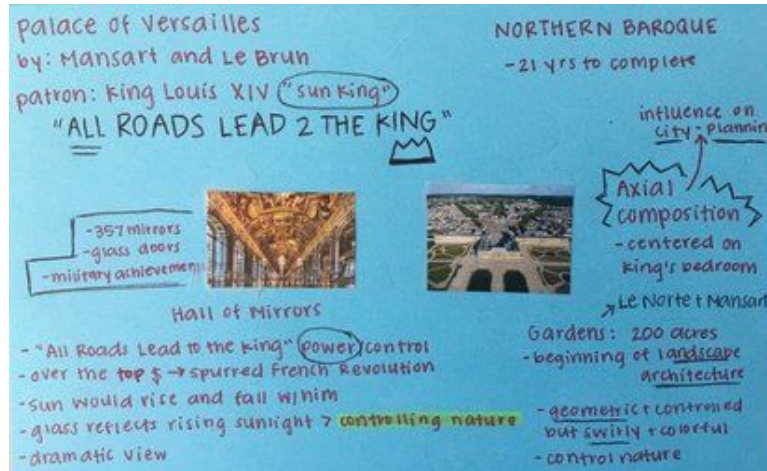 palace of Versailles
by: Mansart and Le Brun
patron: King Louis XIV "sun King"
"ALL ROADS LEAD 2 THE KING"
NORTHERN BAROQUE
-21 yrs to complete
influence on
city-plannin
Axial
composition
-centered on
King's bedroom
-357 mirrors
-glass doors
-military achievemen
Hall of Mirrors
- "All Roads Lead to the King" power/control
-over the top $ → spurred French Revolution
-sun would rise and fall w/him
-glass reflects rising sunlight > controlling nature
-dramatic view
Le Norte + Mansart
Gardens: 200 acres
-beginning of landscape
architecture
-geometric + controlled
but swirly + colorful
-control nature